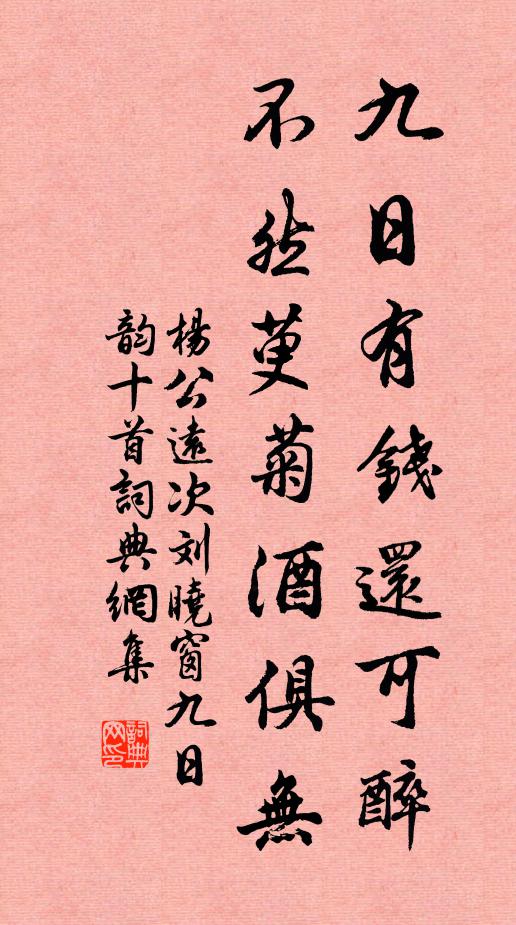 九日有錢還可醉
不然萸菊酒俱無
楊公遠次刘曉窗九日
韵十首詞典網集
詞典
网印